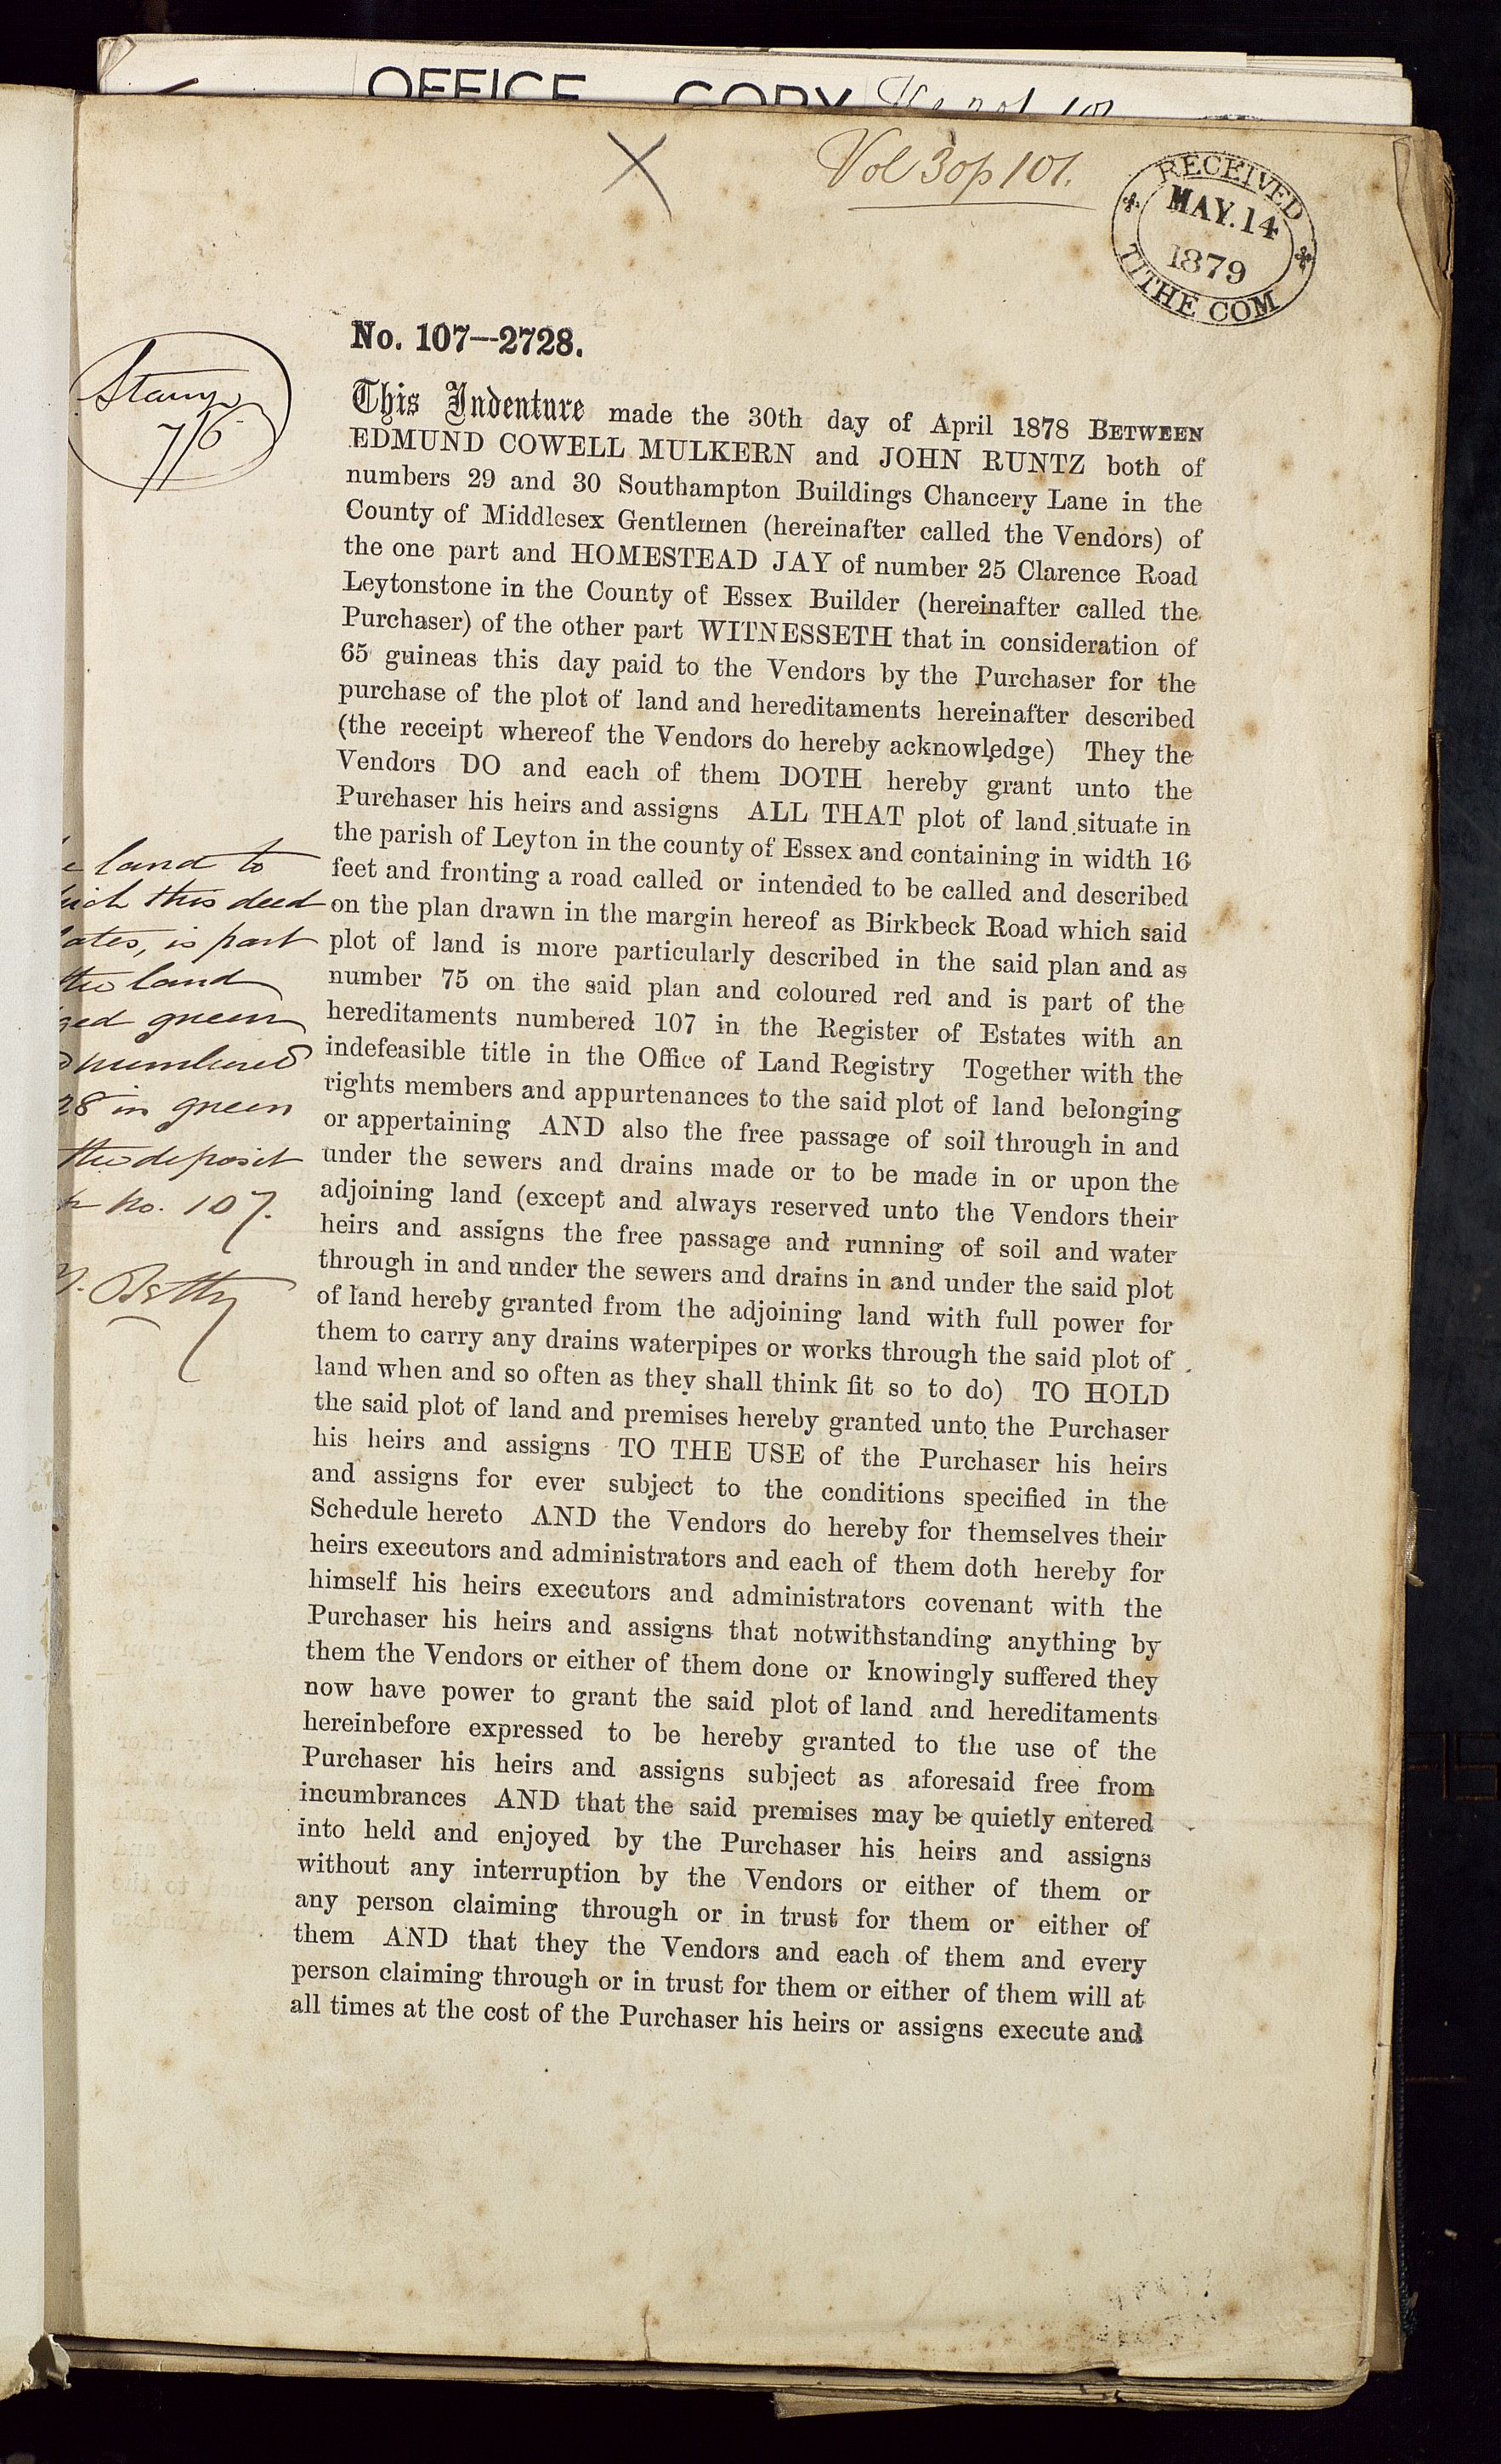 OFFICE COPY
Vol 30 p 101.
RECEIVED
MAY. 14
1879
TITHE COM
No. 107—2728.
Stamp
7/6
This Indenture made the 30th day of April 1878 BETWEEN
EDMUND COWELL MULKERN and JOHN RUNTZ both of
numbers 29 and 30 Southampton Buildings Chancery Lane in the
County of Middlesex Gentlemen (hereinafter called the Vendors) of
the one part and HOMESTEAD JAY of number 25 Clarence Road
Leytonstone in the County of Essex Builder (hereinafter called the
Purchaser) of the other part WITNESSETH that in consideration of
65 guineas this day paid to the Vendors by the Purchaser for the
purchase of the plot of land and hereditaments hereinafter described
(the receipt whereof the Vendors do hereby acknowledge) They the
Vendors DO and each of them DOTH hereby grant unto the
Purchaser his heirs and assigns ALL THAT plot of land situate in
the parish of Leyton in the county of Essex and containing in width 16
feet and fronting a road called or intended to be called and described
on the plan drawn in the margin hereof as Birkbeck Road which said
plot of land is more particularly described in the said plan and as
number 75 on the said plan and coloured red and is part of the
hereditaments numbered 107 in the Register of Estates with an
indefeasible title in the Office of Land Registry Together with the
rights members and appurtenances to the said plot of land belonging
or appertaining AND also the free passage of soil through in and
under the sewers and drains made or to be made in or upon the
adjoining land (except and always reserved unto the Vendors their
heirs and assigns the free passage and running of soil and water
through in and under the sewers and drains in and under the said plot
of land hereby granted from the adjoining land with full power for
them to carry any drains waterpipes or works through the said plot of
land when and so often as they shall think fit so to do) TO HOLD
the said plot of land and premises hereby granted unto the Purchaser
his heirs and assigns TO THE USE of the Purchaser his heirs
and assigns for ever subject to the conditions specified in the
Schedule hereto AND the Vendors do hereby for themselves their
heirs executors and administrators and each of them doth hereby for
himself his heirs executors and administrators covenant with the
Purchaser his heirs and assigns that notwithstanding anything by
them the Vendors or either of them done or knowingly suffered they
now have power to grant the said plot of land and hereditaments
hereinbefore expressed to be hereby granted to the use of the
Purchaser his heirs and assigns subject as aforesaid free from
incumbrances AND that the said premises may be quietly entered
into held and enjoyed by the Purchaser his heirs and assigns
without any interruption by the Vendors or either of them or
any person claiming through or in trust for them or either of
them AND that they the Vendors and each of them and every
person claiming through or in trust for them or either of them will at
all times at the cost of the Purchaser his heirs or assigns execute and
land to
this deed
is part
the land
green
numbered
28 in green
the deposit
No. 107.